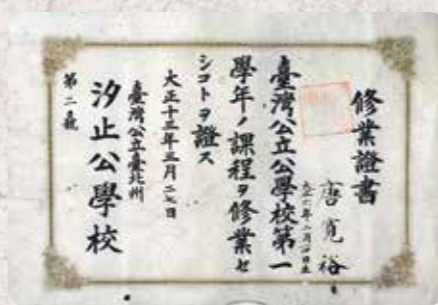 修業證書
唐寬裕
臺灣公立公學校第一
學年ノ課程ヲ修業セ
シコトヲ證ス
大正十三年三月二十日
臺灣公立臺北州
汐止公學校
第二號